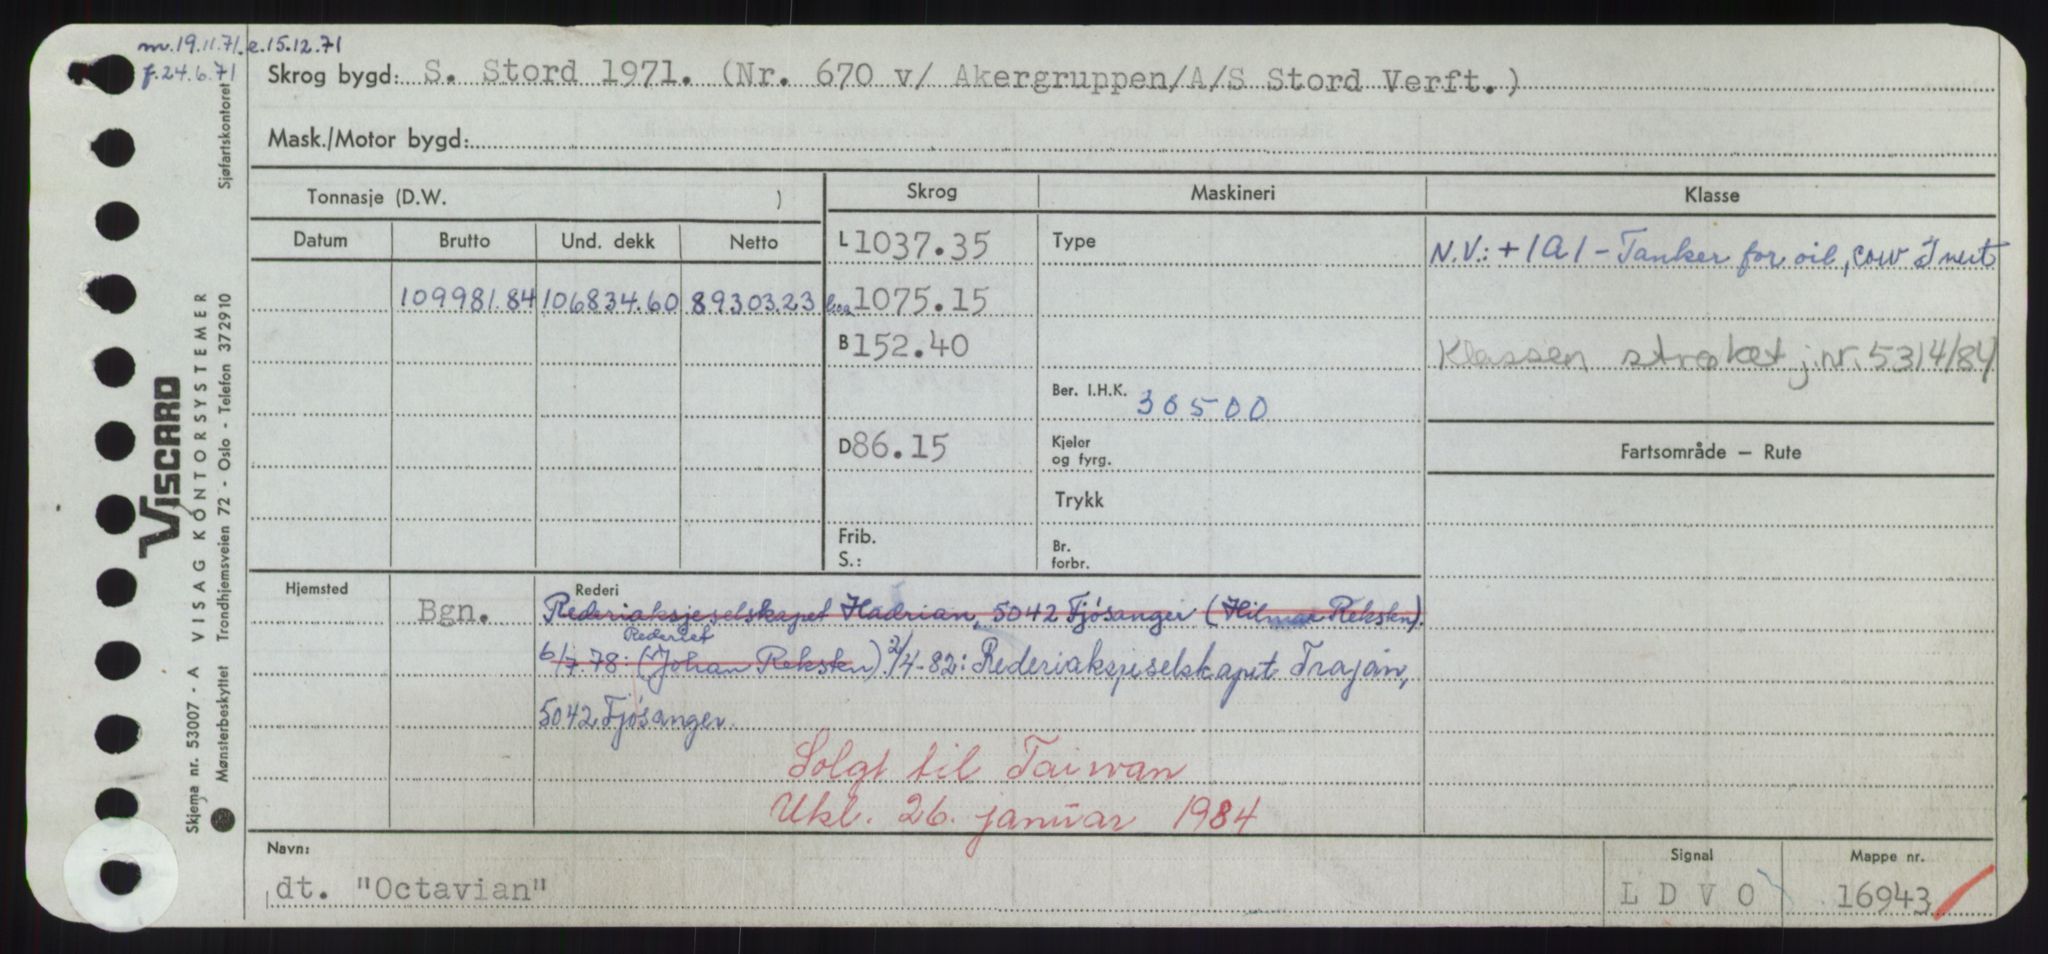 m. 19.11.71. e. 15.12.71
f. 24.6.71
Skrog bygd: S. Stord 1971. (Nr. 670 v/ Akergruppen/A/S Stord Verft.)
Mask./Motor bygd:
Tonnasje (D.W. )
Skrog Maskineri Klasse
Datum Brutto Und. dekk Netto
L 1037.35 Type N.V.: + 1A1 - Tanker for oil, cow Inert
109981.84 106834.60 89303.23 loa 1075.15
B 152.40 Klassen strøket j.nr. 5314/84
Ber. I.H.K. 30500
D 86.15 Kjeler og fyrg. Fartsområde – Rute
Trykk
Frib. S.: Br. forbr.
Hjemsted Rederi
Bgn. Rederiaksjeselskapet Hadrian, 5042 Fjösanger (Hilmar Rekstn).
Rederiet
6/7.78: (Johan Rekstn). 2/4-82: Rederiaksjeselskapet Trajan,
5042 Fjösanger.
Solgt til Taiwan
Ukl. 26. januar 1984
Navn: Signal Mappe nr.
dt. "Octavian" L D V O 16943
Sjøfartskontoret
VISCARD
VISAG KONTORSYSTEMER
Trondhjemsveien 72 - Oslo - Telefon 372910
Skjema nr. 53007 - A
Mønsterbeskyttet